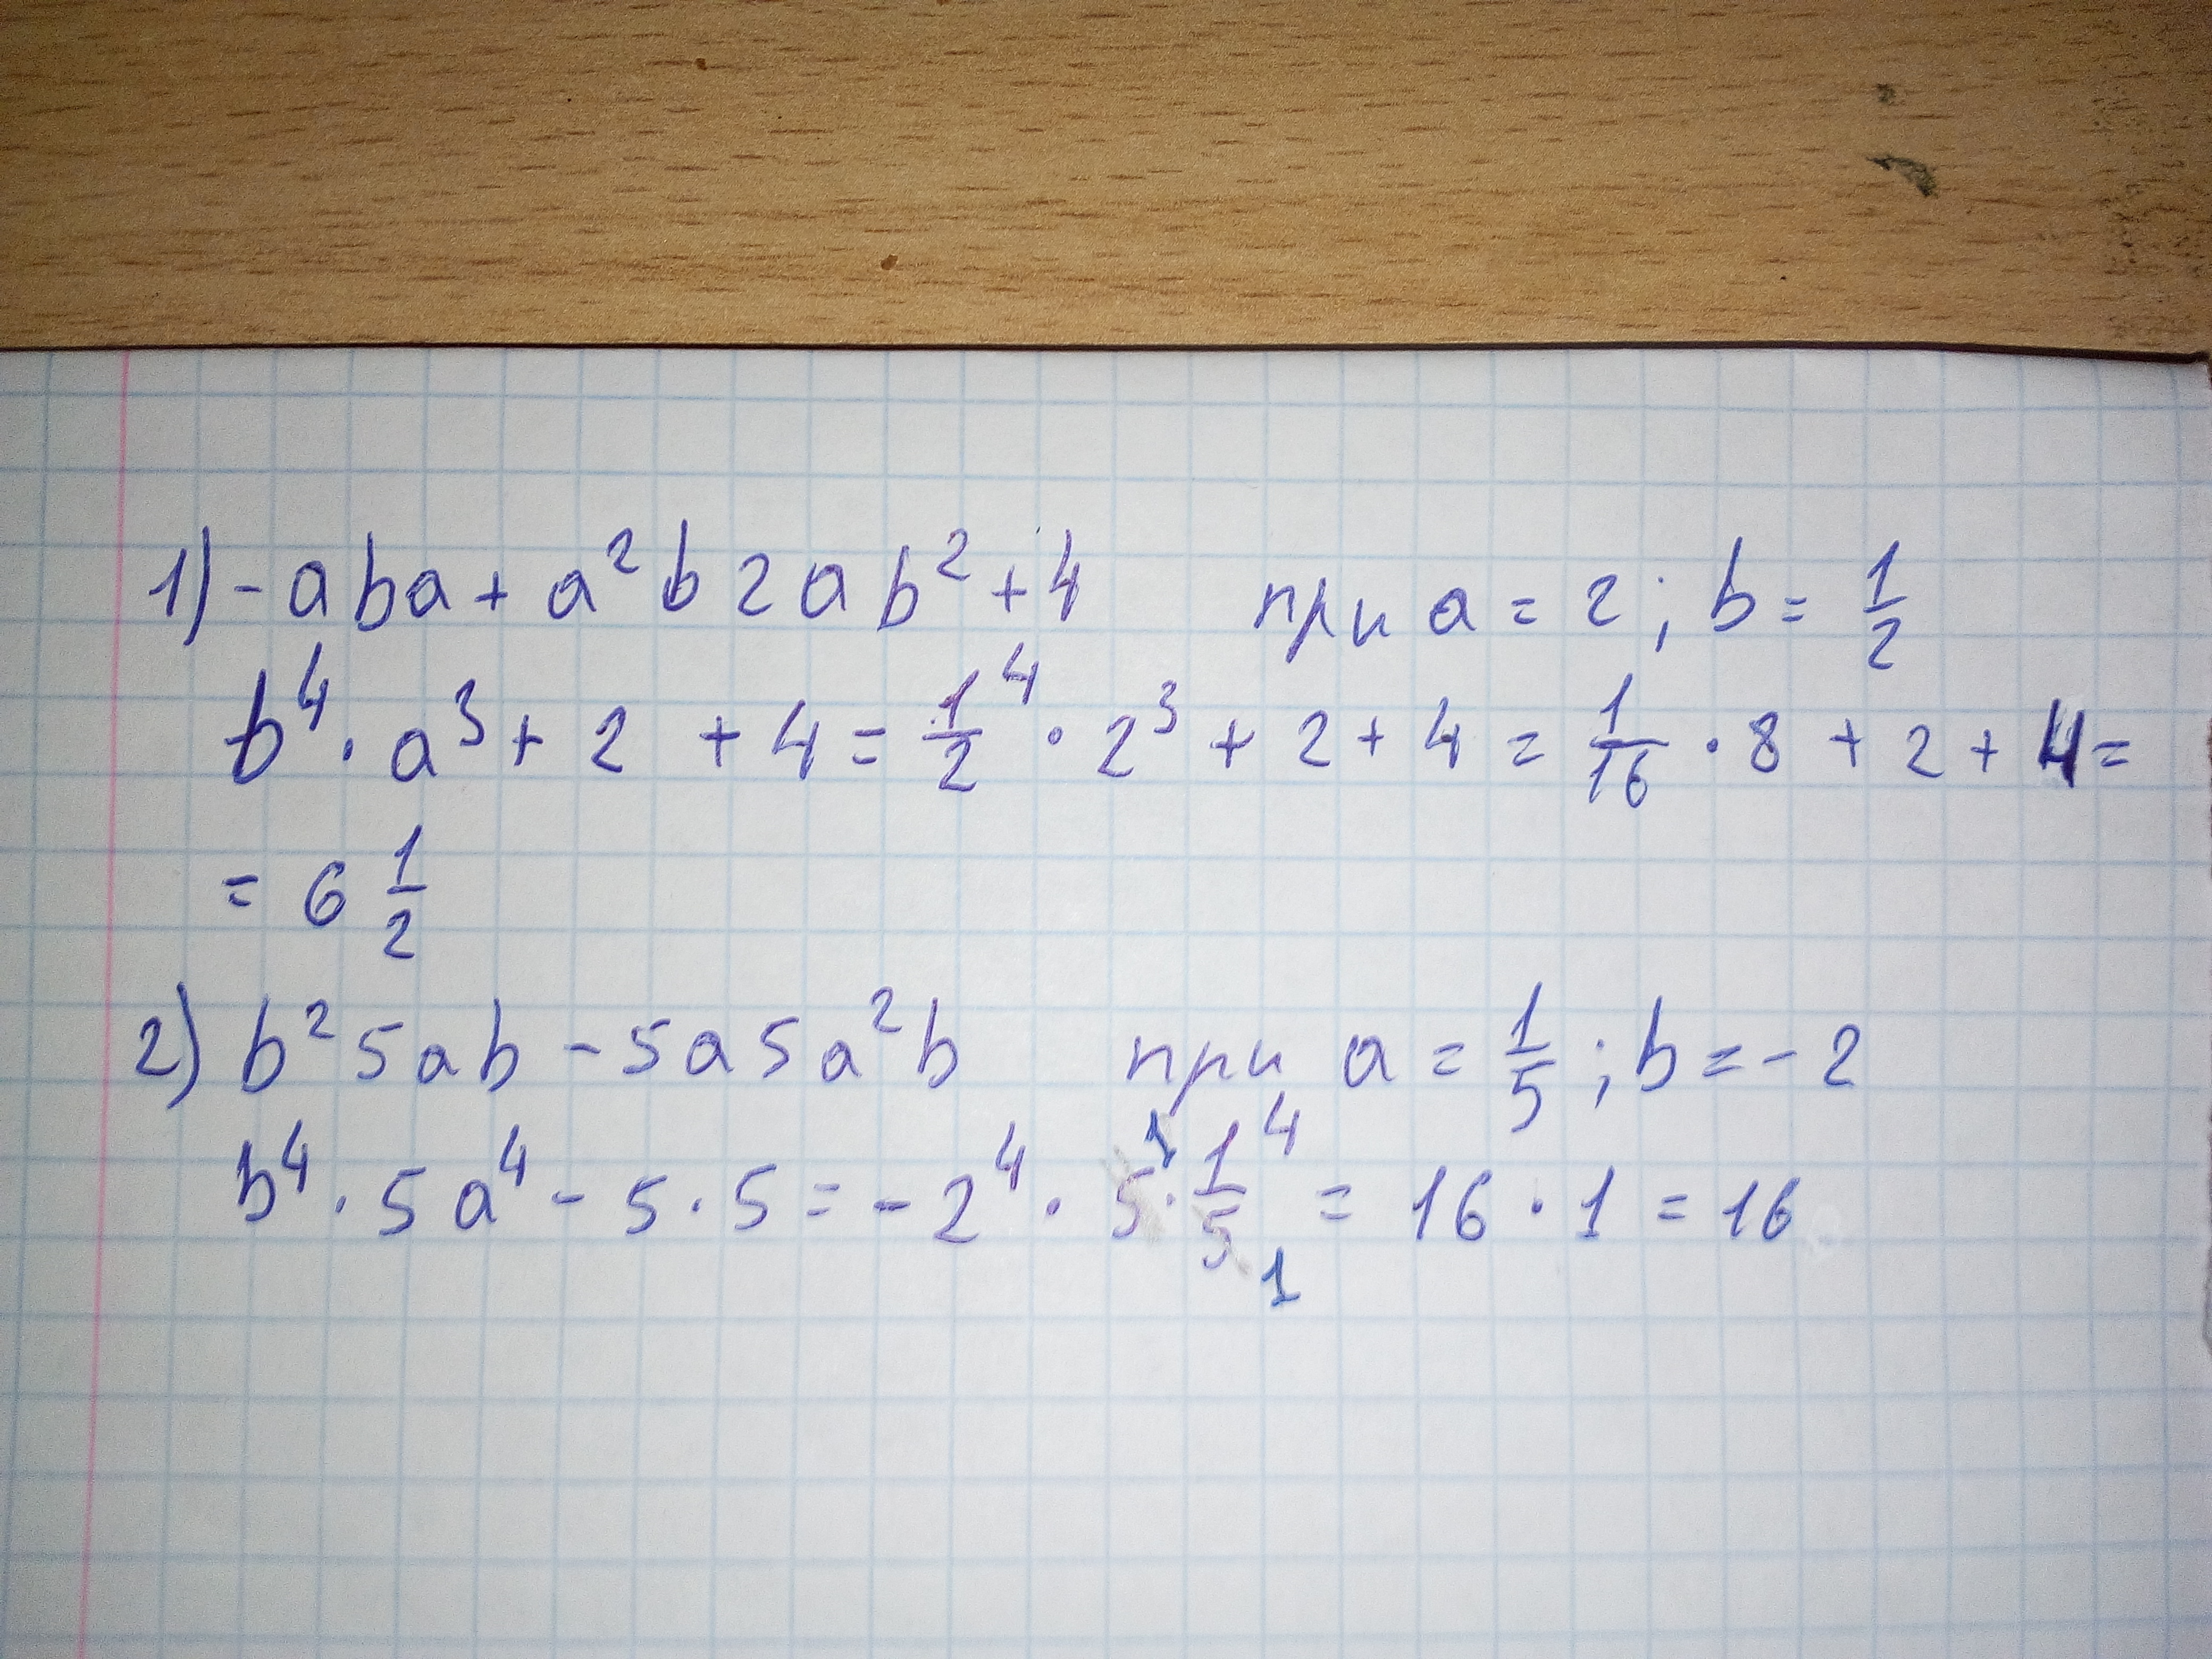 1) - a b a + a² b 2 a b² + 4 при a = 2 ; b = 1/2
b⁴ · a³ + 2 + 4 = 1/2⁴ · 2³ + 2 + 4 = 1/16 · 8 + 2 + 4 =
= 6 1/2
2) b² 5 a b - 5 a 5 a² b при a = 1/5 ; b = - 2
b⁴ · 5 a⁴ - 5 · 5 = - 2⁴ · 5¹ · 1/5₁⁴ = 16 · 1 = 16